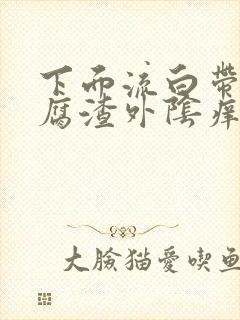 下面流白带
腐渣外陰痒
大臉猫愛喫鱼